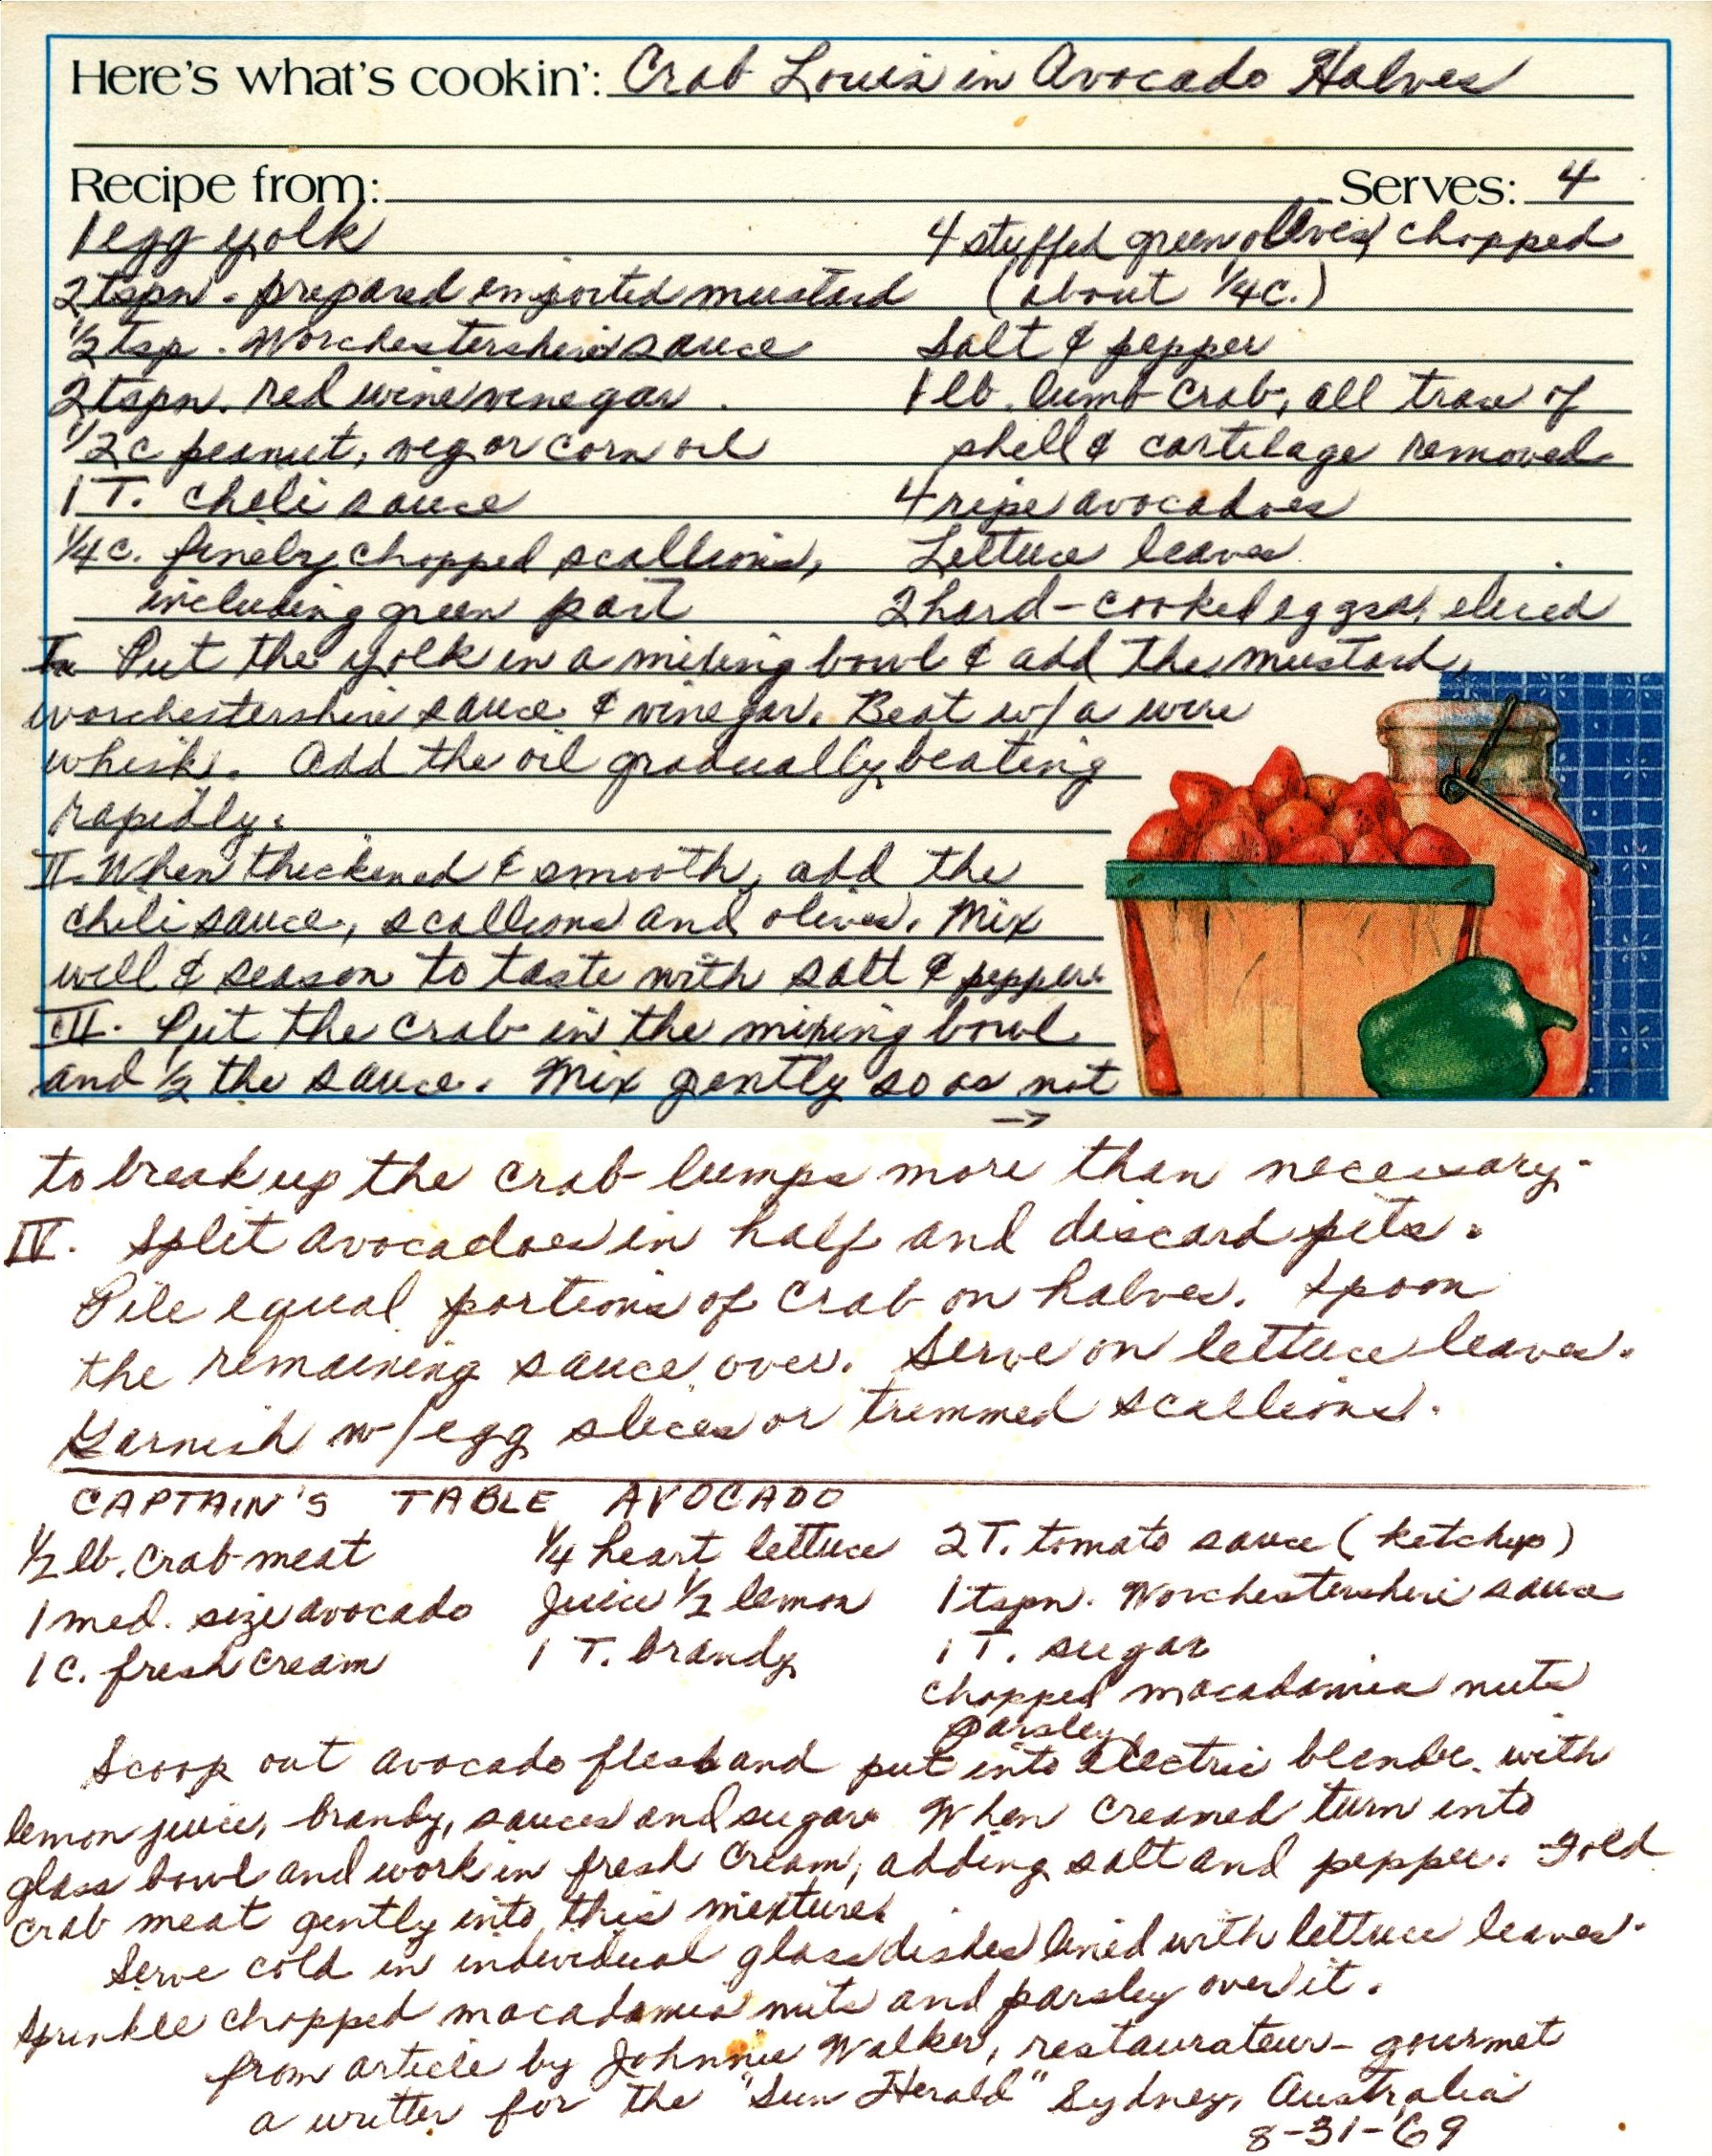 Here's what's cookin': Crab Louis in Avocado Halves
Recipe from: Serves: 4
1 egg yolk
2 tspn. prepared imported mustard
1/2 tsp. Worchestershire sauce
2 tspn. red wine vinegar
1/2 c peanut, veg or corn oil
1 T. chili sauce
1/4 c. finely chopped scallions,
including green part
4 stuffed green olives, chopped
(about 1/4 c.)
Salt & pepper
1 lb. lump crab, all trace of
shell & cartilage removed
4 ripe avocadoes
Lettuce leaves
2 hard-cooked eggs, sliced
I. Put the yolk in a mixing bowl & add the mustard,
worchestershire sauce & vinegar. Beat w/a wire
whisk. Add the oil gradually, beating
rapidly.
II. When thickened & smooth, add the
chili sauce, scallions and olives. Mix
well & season to taste with salt & pepper.
III. Put the crab in the mixing bowl
and 1/2 the sauce. Mix gently so as not
→
to break up the crab lumps more than necessary.
IV. Split avocadoes in half and discard pits.
Pile equal portions of crab on halves. Spoon
the remaining sauce over. Serve on lettuce leaves.
Garnish w/egg slices or trimmed scallions.
CAPTAIN'S TABLE AVOCADO
1/2 lb. crab meat
1 med. size avocado
1 C. fresh cream
1/4 heart lettuce
Juice 1/2 lemon
1 T. brandy
2 T. tomato sauce (ketchup)
1 tspn. Worchestershire sauce
1 T. sugar
chopped macadamia nuts
Parsley
Scoop out avocado flesh and put into electric blender with
lemon juice, brandy, sauces and sugar. When creamed turn into
glass bowl and work in fresh cream, adding salt and pepper. Fold
crab meat gently into this mixture.
Serve cold in individual glass dishes lined with lettuce leaves.
Sprinkle chopped macadamia nuts and parsley over it.
from article by Johnnie Walker, restaurateur-gourmet
a writer for the "Sun Herald" Sydney, Australia
8-31-69